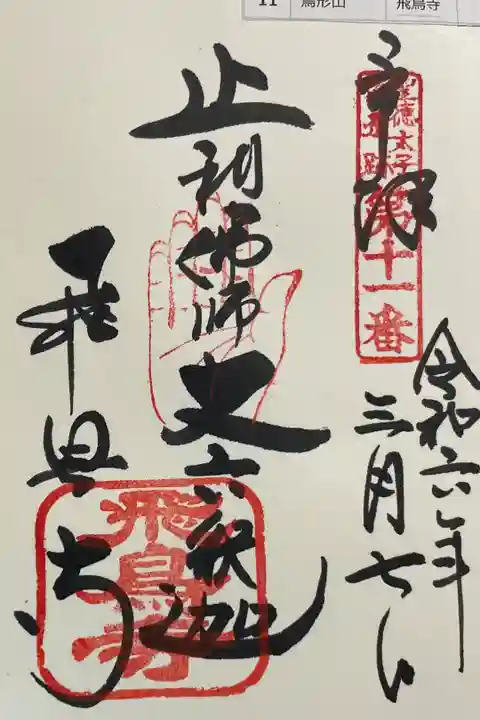 11 鳥形山 飛鳥寺
奉拝
聖徳太子
第十一番
令和六年
三月七日
止利佛師 丈六釈迦
寺
飛鳥寺